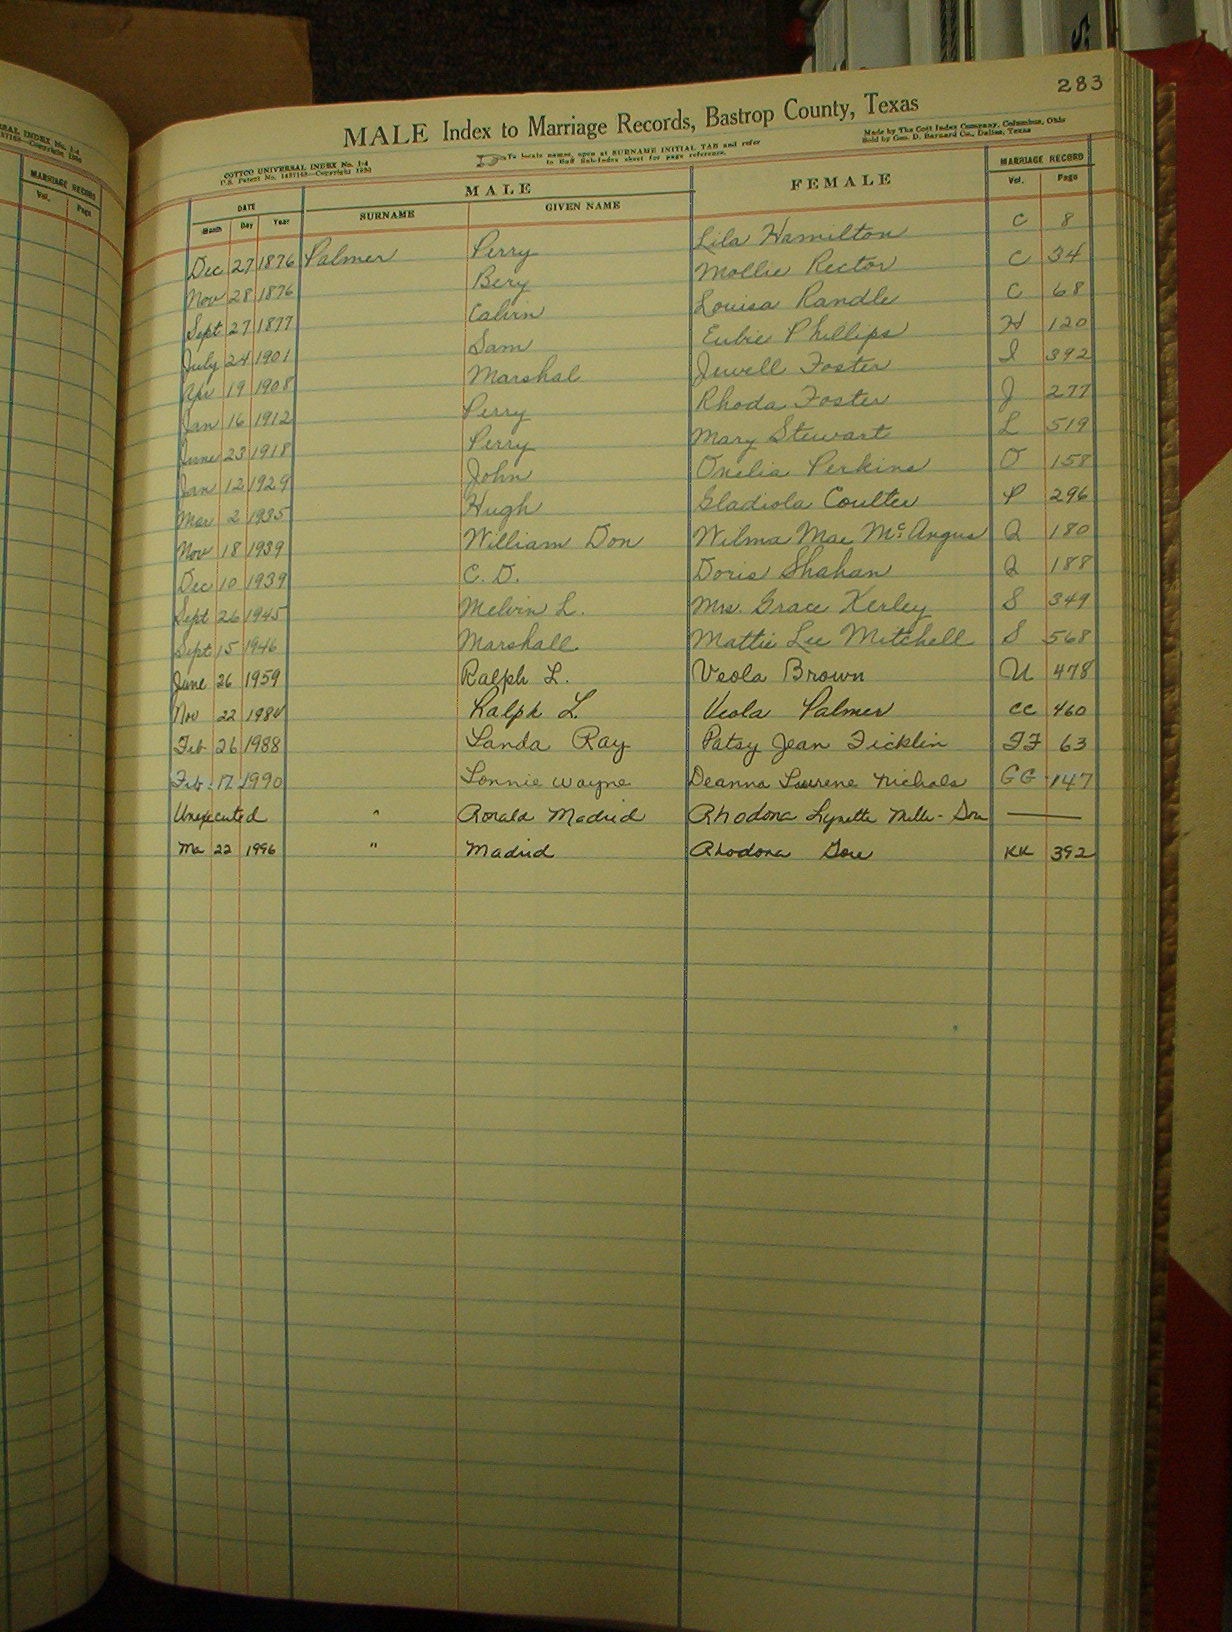 283
MALE Index to Marriage Records, Bastrop County, Texas
COTTCO UNIVERSAL INDEX No. 1-4
U.S. Patent No. Copyright 1930
To locate names, open at SURNAME INITIAL TAB and refer
to Buff Sub-Index sheet for page reference.
Made by The Cott Index Company, Columbus, Ohio
Sold by Geo. D. Barnard Co., Dallas, Texas
DATE MALE FEMALE MARRIAGE RECORD
Month Day Year SURNAME GIVEN NAME Vol. Page
Dec 27 1876 Palmer Perry Lila Hamilton C 8
Nov 28 1876 Bery Mollie Rector C 34
Sept 27 1877 Calvin Louisa Randle C 68
July 24 1901 Sam Eubie Phillips H 120
Apr 19 1908 Marshal Jewell Foster I 392
Jan 16 1912 Perry Rhoda Foster J 277
June 23 1918 Perry Mary Stewart L 519
Jan 12 1929 John Onelia Perkins O 158
Mar 2 1935 Hugh Gladiola Coulter P 296
Nov 18 1939 William Don Wilma Mae McAngus Q 180
Dec 10 1939 C. D. Doris Shahan Q 188
Sept 26 1945 Melvin L. Mrs. Grace Kerley S 349
Sept 15 1946 Marshall Mattie Lee Mitchell S 568
June 26 1959 Ralph L. Veola Brown U 478
Nov 22 1984 Ralph L. Veola Palmer CC 460
Feb 26 1988 Landa Ray Patsy Jean Ficklin FF 63
Feb. 17 1990 Lonnie Wayne Deanna Laurene Nichols GG 147
Unexecuted " Ronald Madrid Rhodona Lynette
Ma 22 1996 " Madrid Rhodona Gore KK 392
MARRIAGE RECORD
Vol. Page